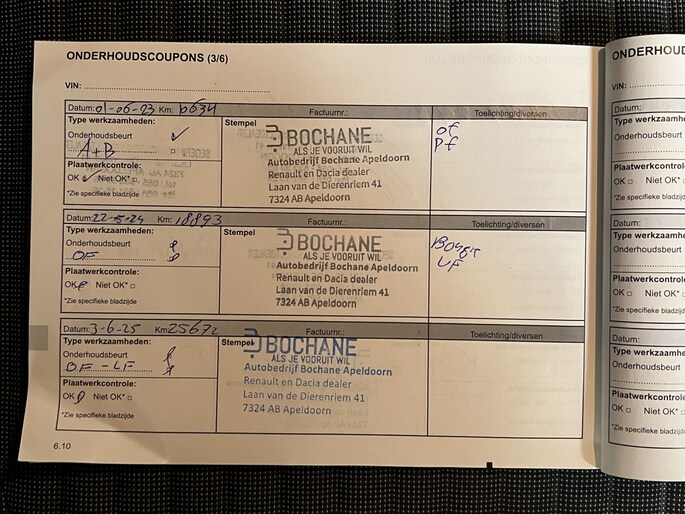 ONDERHOUDSCOUPONS (3/6)
VIN:
Datum: 01-06-23 Km: 6634 Factuurnr.: Toelichting/diversen
Type werkzaamheden:
Onderhoudsbeurt ✓
A+B
Plaatwerkcontrole:
OK ✓ Niet OK* □
*Zie specifieke bladzijde
Stempel
BOCHANE
ALS JE VOORUIT WIL
Autobedrijf Bochane Apeldoorn
Renault en Dacia dealer
Laan van de Dierenriem 41
7324 AB Apeldoorn
of
Pf
Datum: 22-5-24 Km: 18893 Factuurnr.: Toelichting/diversen
Type werkzaamheden:
Onderhoudsbeurt
OF
Plaatwerkcontrole:
OK Niet OK* □
*Zie specifieke bladzijde
Stempel
BOCHANE
ALS JE VOORUIT WIL
Autobedrijf Bochane Apeldoorn
Renault en Dacia dealer
Laan van de Dierenriem 41
7324 AB Apeldoorn
LF
Datum: 3-6-25 Km 25672 Factuurnr.: Toelichting/diversen
Type werkzaamheden:
Onderhoudsbeurt
OF - LF
Plaatwerkcontrole:
OK Niet OK* □
*Zie specifieke bladzijde
Stempel
BOCHANE
ALS JE VOORUIT WIL
Autobedrijf Bochane Apeldoorn
Renault en Dacia dealer
Laan van de Dierenriem 41
7324 AB Apeldoorn
6.10
ONDERHOUD
VIN:
Datum:
Type werkzaamhe
Onderhoudsbeurt
Plaatwerkcontrole
OK □ Niet OK* □
*Zie specifieke bladzijd
Datum:
Type werkzaamhe
Onderhoudsbeurt
Plaatwerkcontrole
OK □ Niet OK* □
*Zie specifieke bladzijd
Datum:
Type werkzaamhe
Onderhoudsbeurt
Plaatwerkcontrole
OK □ Niet OK*
*Zie specifieke bladzi